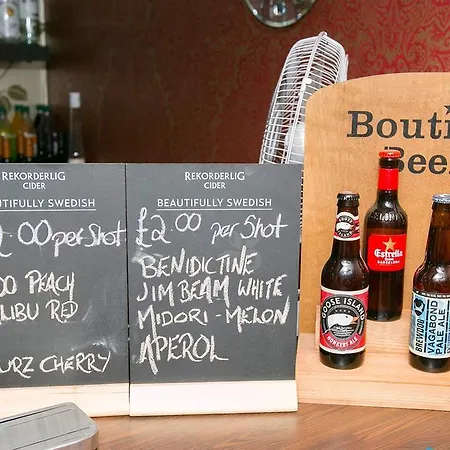 REKORDERLIG
CIDER
AUTIFULLY SWEDISH
2.00 per Shot
OO PEACH
LIBU RED
URZ CHERRY
REKORDERLIG
CIDER
BEAUTIFULLY SWEDISH
£2.00 per Shot
BENIDICTINE
JIM BEAM WHITE
MIDORI - MELON
APEROL
Bouti
Beer
GOOSE ISLAND
HONKERS ALE
Estrella
DAMM
BARCELONA
BREWDOG
VAGABOND
PALE ALE